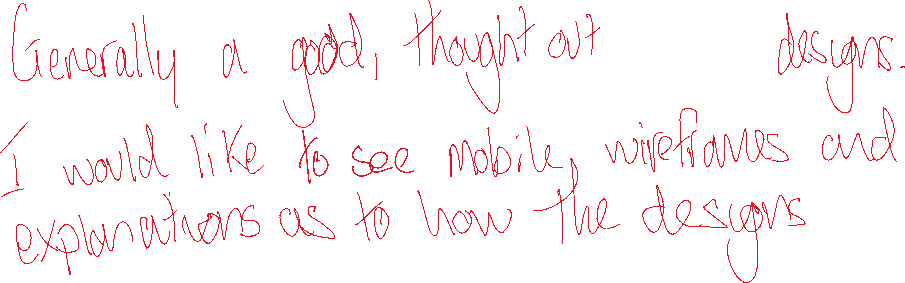 Generally a good, thought out designs.
I would like to see mobile, wireframes and
explanations as to how the designs